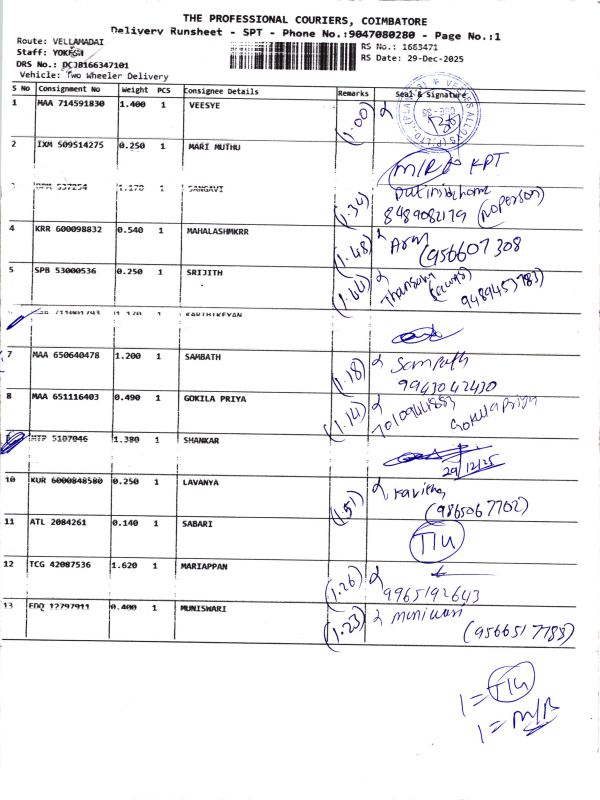 THE PROFESSIONAL COURIERS, COIMBATORE
Delivery Runsheet - SPT - Phone No.:9047080280 - Page No.:1
Route: VELLAMADAI
Staff: YOKESH
RS No.: 1663471
DRS No.: DCJ8166347101
RS Date: 29-Dec-2025
Vehicle: Two Wheeler Delivery
S No Consignment No Weight PCS Consignee Details Remarks Seal & Signature
1 MAA 714591830 1.400 1 VEESYE (1.00)
2 IXM 509514275 0.250 1 MARI MUTHU M/R KPT
537254 1.170 1 SANGAVI (1.34)
8489082179 (no person)
4 KRR 600098832 0.540 1 MAHALASHMKRR (1.48) Arun
(956607308
5 SPB 53000536 0.250 1 SRIJITH (1.44)
9489453783)
1.170 1 KARTHIKEYAN
7 MAA 650640478 1.200 1 SAMBATH (1.18) Sampath
9943042430
8 MAA 651116403 0.490 1 GOKILA PRIYA (1.14)
Gokila Priya
MTP 5107046 1.380 1 SHANKAR
29/12/25
10 KUR 6000848580 0.250 1 LAVANYA (1.51)
(9865067702)
11 ATL 2084261 0.140 1 SABARI TIU
12 TCG 42087536 1.620 1 MARIAPPAN (1.26)
9965192643
13 EDQ 12797911 0.400 1 MUNISWARI (1.23) muniwari
(9566517788)
1= TIU
1= M/R